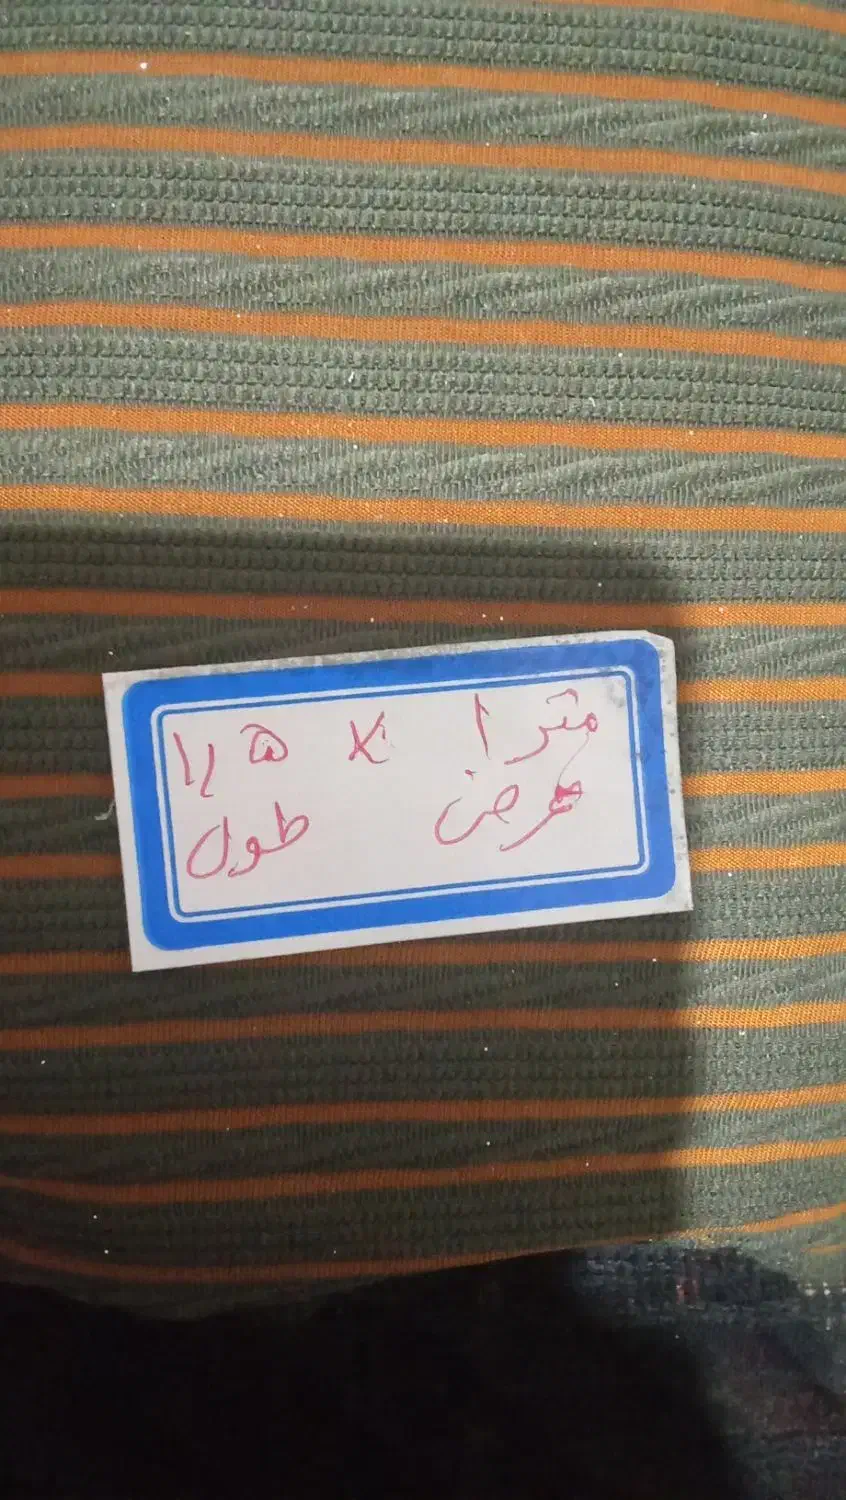 متر ۱ × ۱/۵
عرض طول